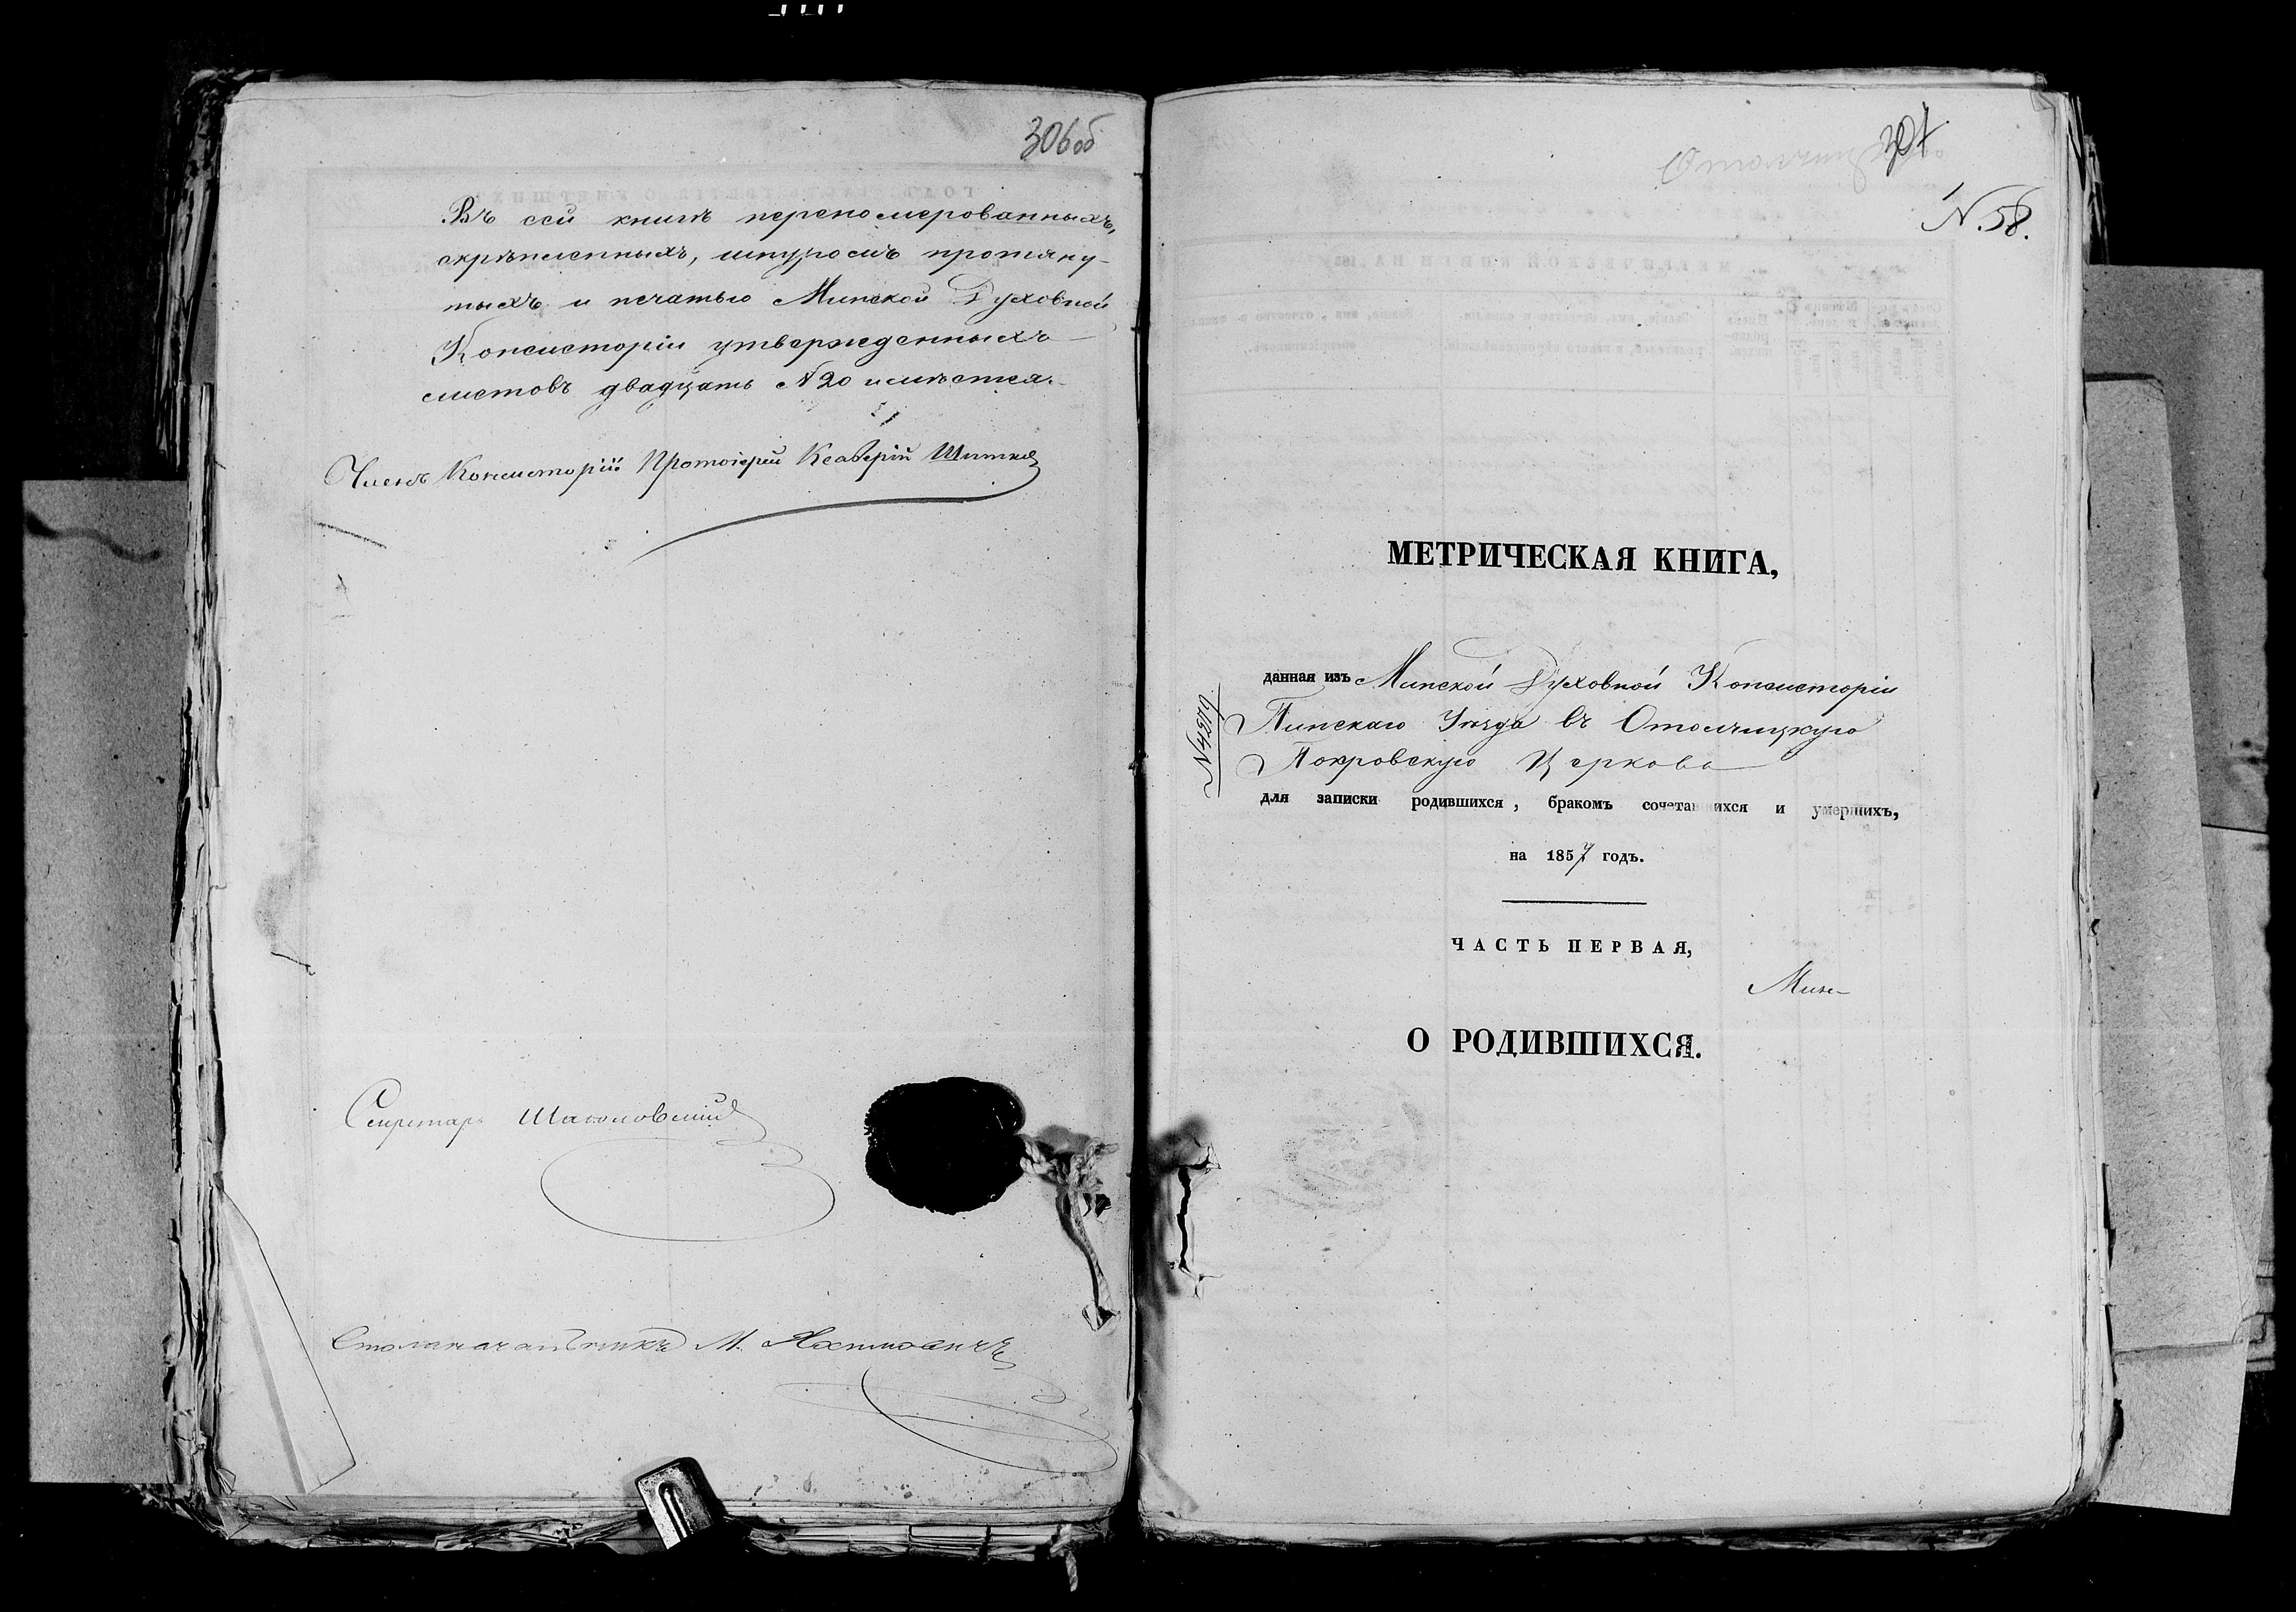 306об
Въ сей книгѣ перепомерованныхъ,
скрѣпленныхъ, шнуромъ протяну-
тыхъ и печатью Минской Духовной
Консисторіи утвержденныхъ
листовъ двадцать N 20 имѣется.
Членъ Консисторіи Протоіерей
Секретарь
Столоначальникъ М.
307
N. 58.
МЕТРИЧЕСКАЯ КНИГА,
данная изъ Минской Духовной Консисторіи
Пинскаго Уѣзда въ Отолчицкую
Покровскую Церковь
N 4279
для записки родившихся, бракомъ сочетавшихся и умершихъ,
на 1857 годъ.
ЧАСТЬ ПЕРВАЯ,
Мин-
О РОДИВШИХСЯ.